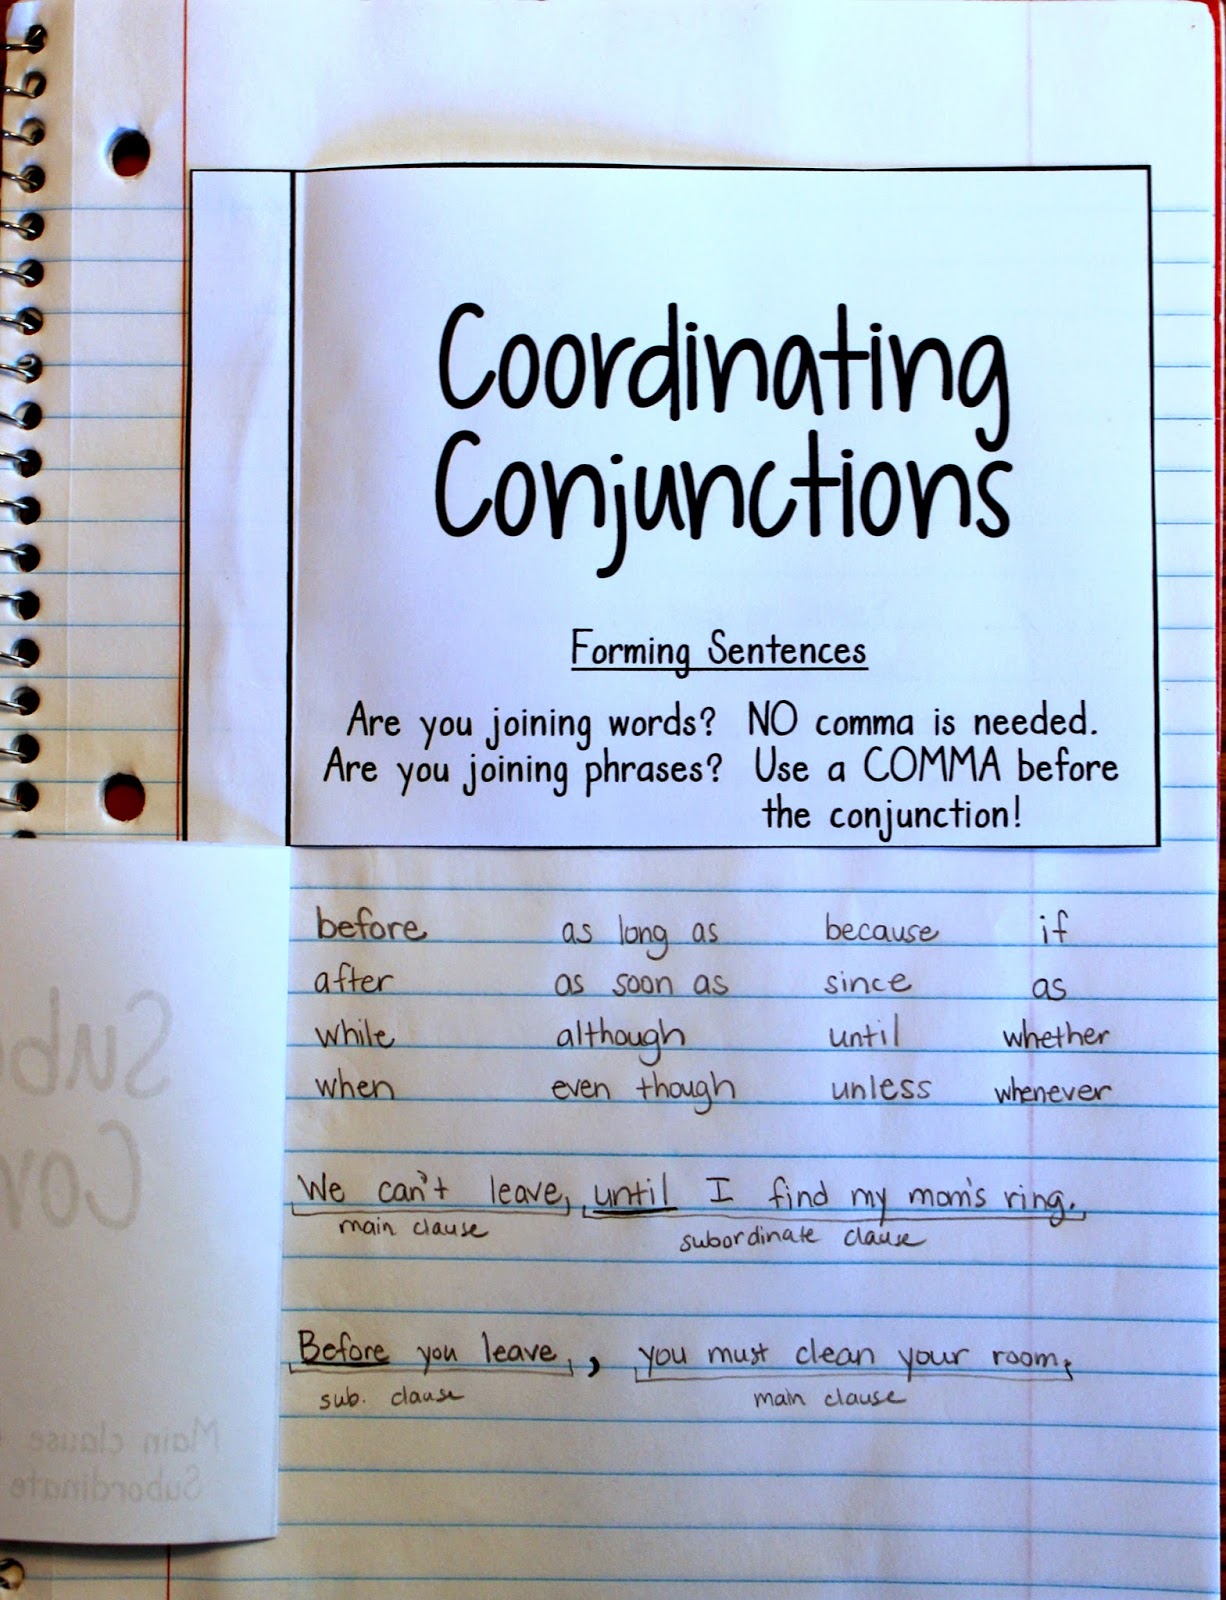 Coordinating
Conjunctions
Forming Sentences
Are you joining words? NO comma is needed.
Are you joining phrases? Use a COMMA before
the conjunction!
before as long as because if
after as soon as since as
while although until whether
when even though unless whenever
We can't leave, until I find my mom's ring.
main clause subordinate clause
Before you leave, you must clean your room.
sub. clause main clause
Main clause
Subordinate